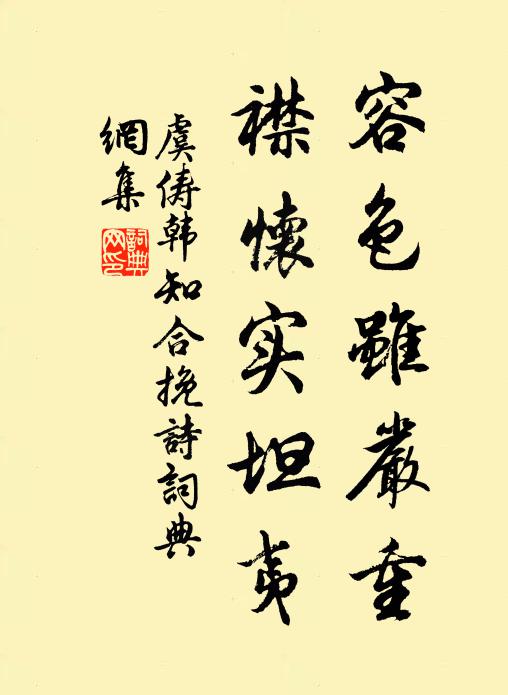 容色雖嚴重
襟懷实坦夷
虞俦韩知合挽詩詞典
網集
詞典
网印